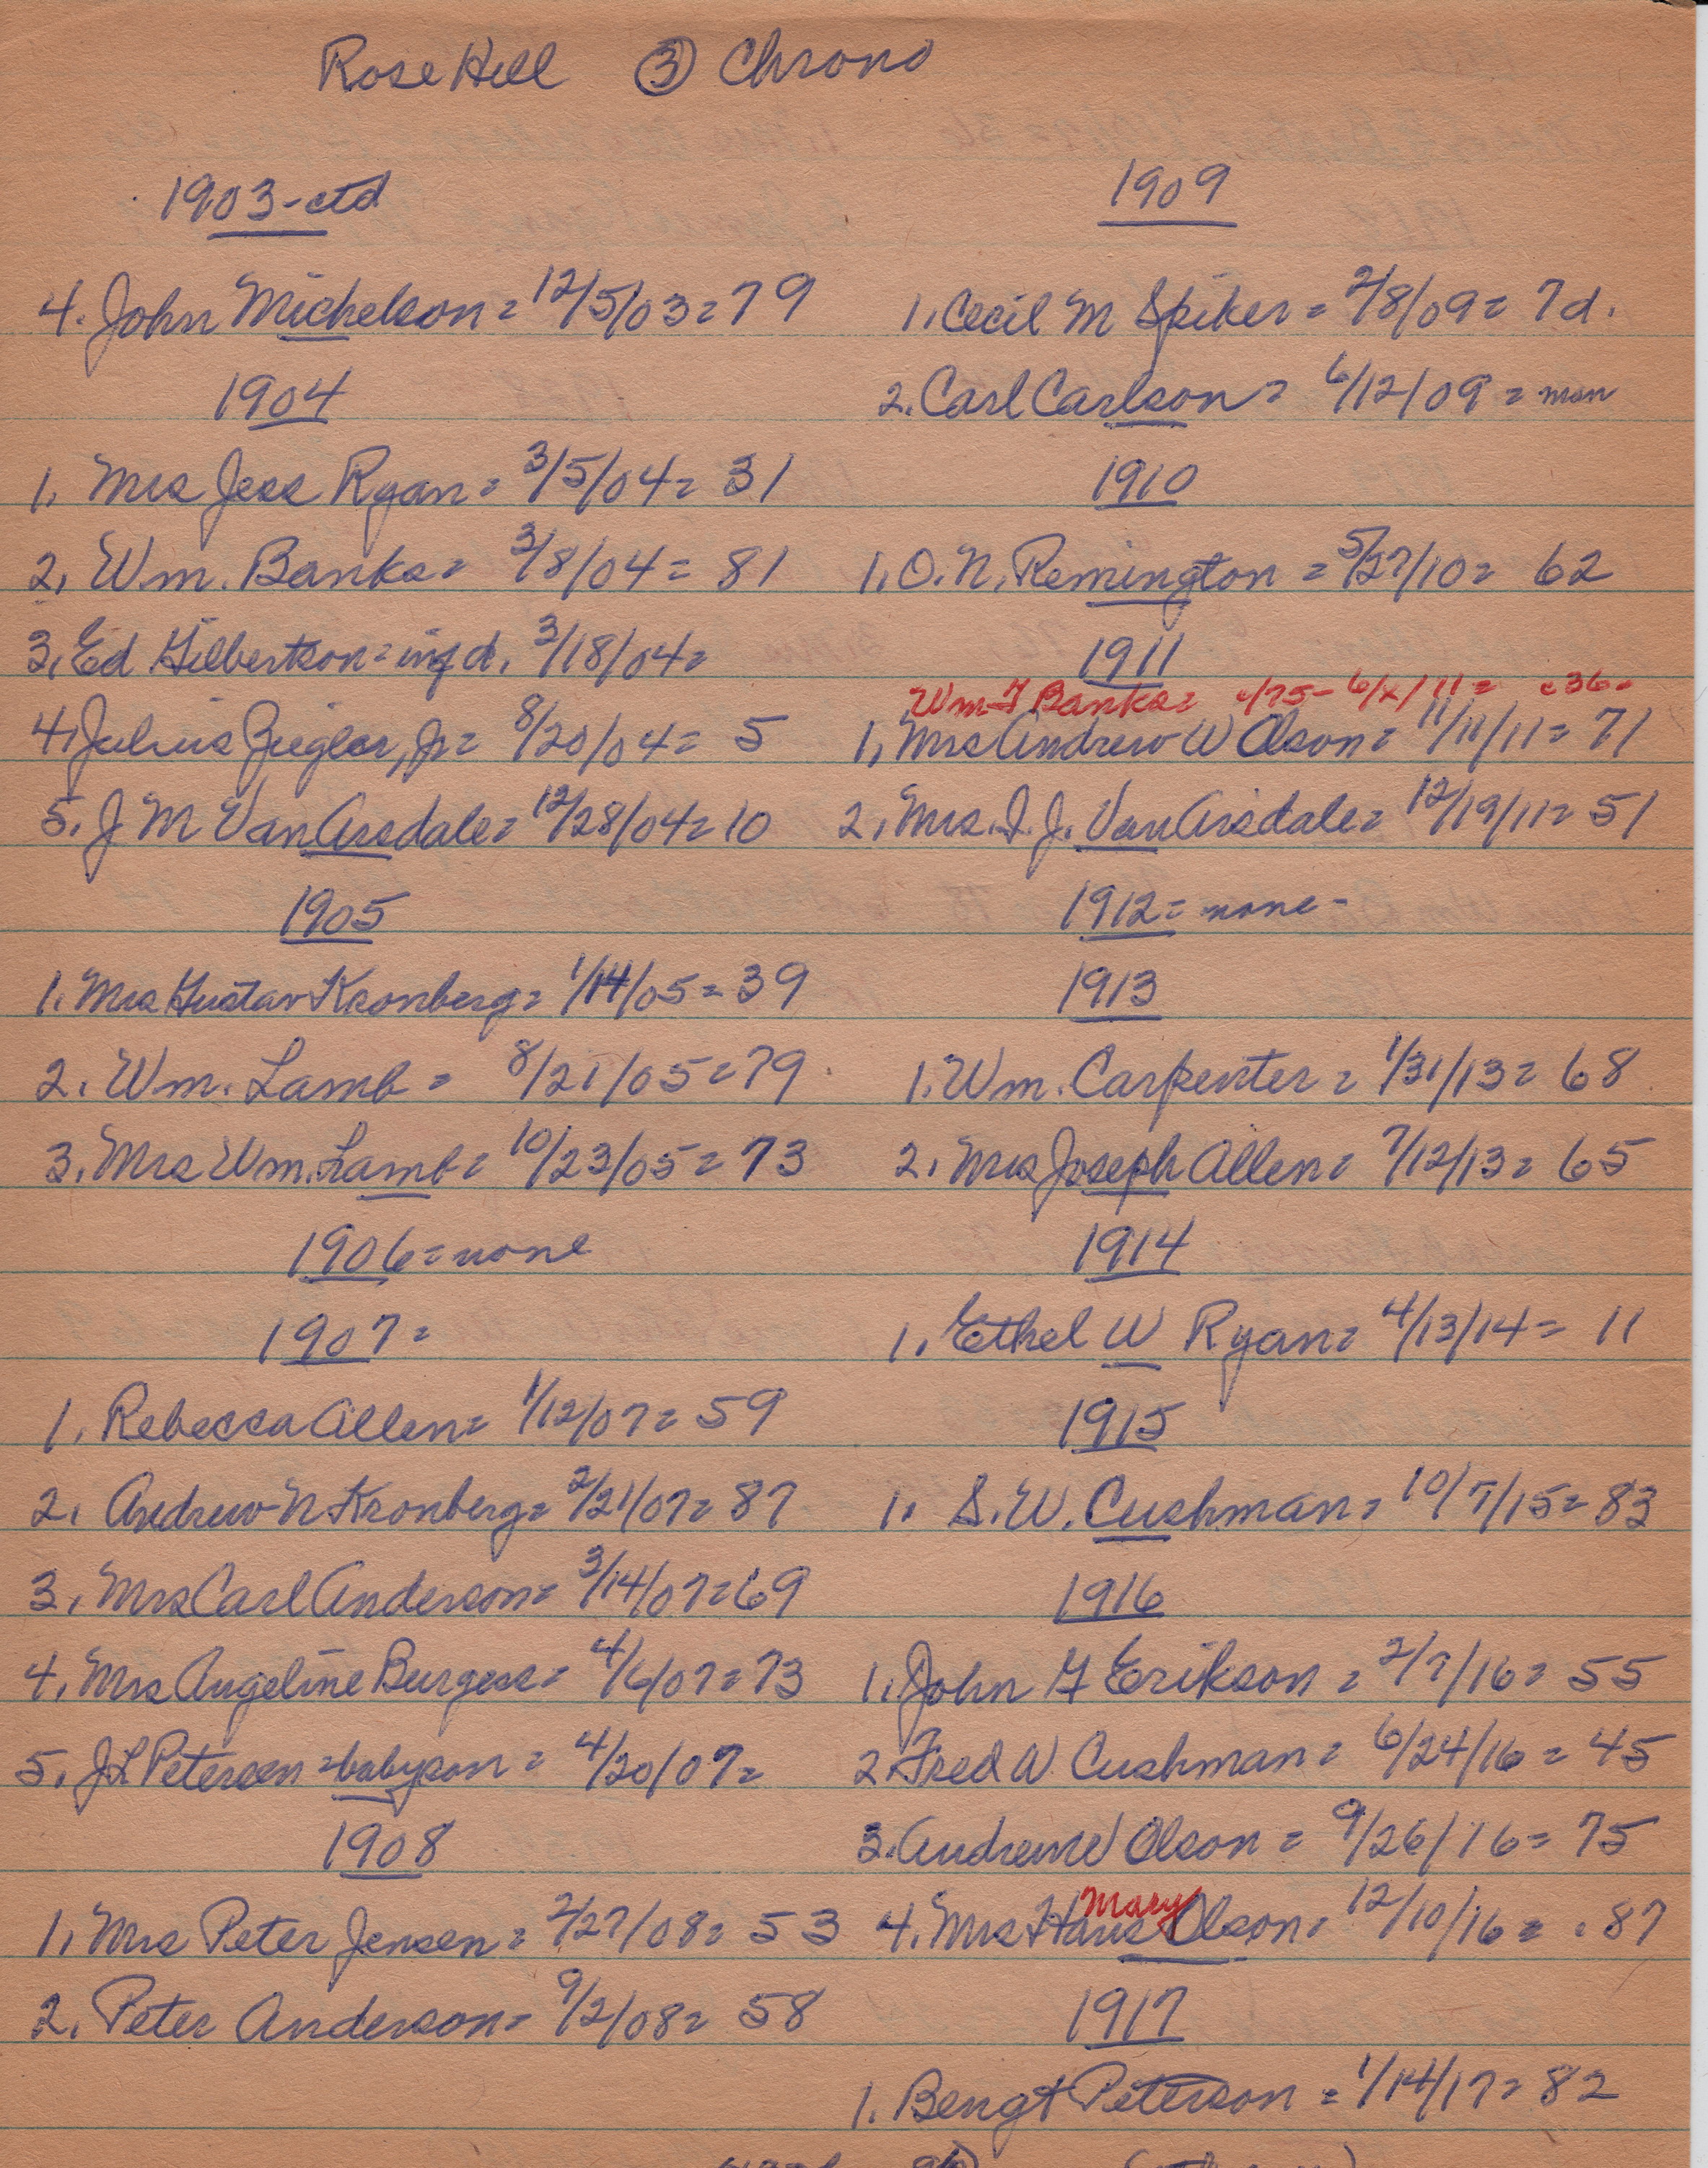 Rose Hill ③ Chrono
1903-ctd
4. John Michelson = 12/5/03 = 79
1904
1. Mrs Jess Ryan = 3/5/04 = 31
2. Wm. Banks = 3/8/04 = 81
3. Ed Gilbertson = inf d. 3/18/04 =
4. Julius Ziegler, Jr = 8/20/04 = 5
5. J M VanArsdale = 12/28/04 = 10
1905
1. Mrs Gustav Kronberg = 1/14/05 = 39
2. Wm. Lamb = 8/21/05 = 79
3. Mrs Wm. Lamb = 10/23/05 = 73
1906 = none
1907 =
1. Rebecca Allen = 1/12/07 = 59
2. Andrew N Kronberg = 2/21/07 = 87
3. Mrs Carl Anderson = 3/14/07 = 69
4. Mrs Angeline Burgess = 4/6/07 = 73
5. J L Petersen = baby son = 4/20/07 =
1908
1. Mrs Peter Jensen = 2/27/08 = 53
2. Peter Anderson = 9/2/08 = 58
1909
1. Cecil M Spiker = 2/8/09 = 7d.
2. Carl Carlson = 6/12/09 = man
1910
1. O. N. Remington = 5/27/10 = 62
1911
Wm F Banks = c/75 - 6/x/11 = c36-
1. Mrs Andrew W Olson = 11/11/11 = 71
2. Mrs. I. J. VanArsdale = 12/19/11 = 51
1912 = none -
1913
1. Wm. Carpenter = 1/31/13 = 68
2. Mrs Joseph Allen = 7/12/13 = 65
1914
1. Ethel W Ryan = 4/13/14 = 11
1915
1. S. W. Cushman = 10/7/15 = 83
1916
1. John F Erikson = 2/7/16 = 55
2. Fred W. Cushman = 6/24/16 = 45
3. Andrew W Olson = 9/26/16 = 75
Mary
4. Mrs Hans Olson = 12/10/16 = 87
1917
1. Bengt Peterson = 1/14/17 = 82